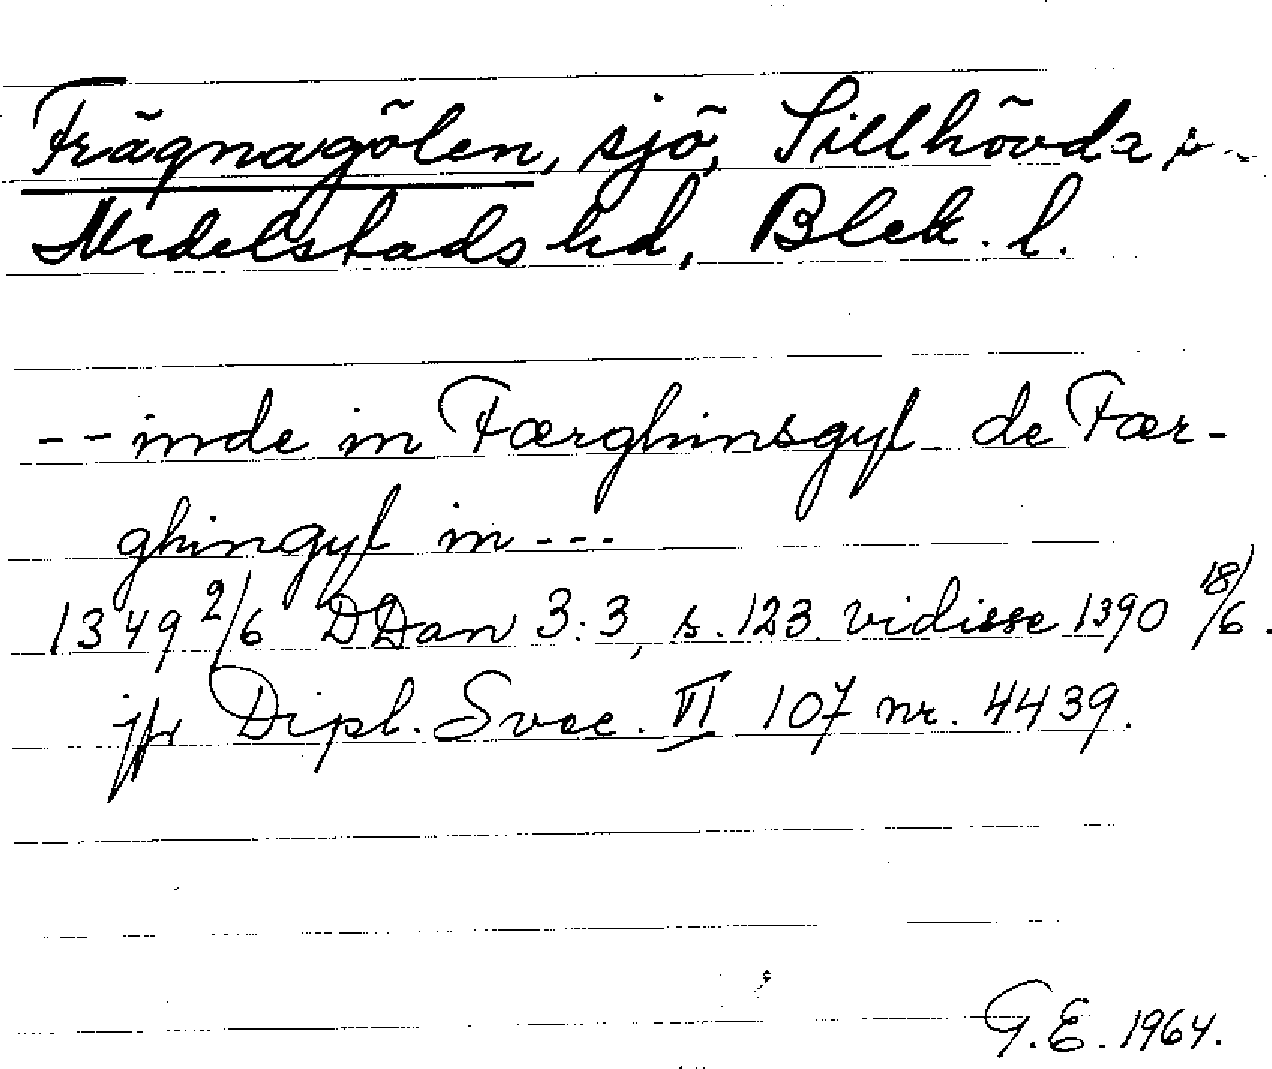 Frägnagölen, sjö, Sillhövda
Medelstads hd, Blek. l.
-- inde in Færghinsgyl de Fær-
ghingyl in ---
1349 2/6 DDan 3:3, s. 123. vidisse 1390 18/6.
jfr Dipl. Svec. VI 107 nr. 4439.
G.E. 1964.